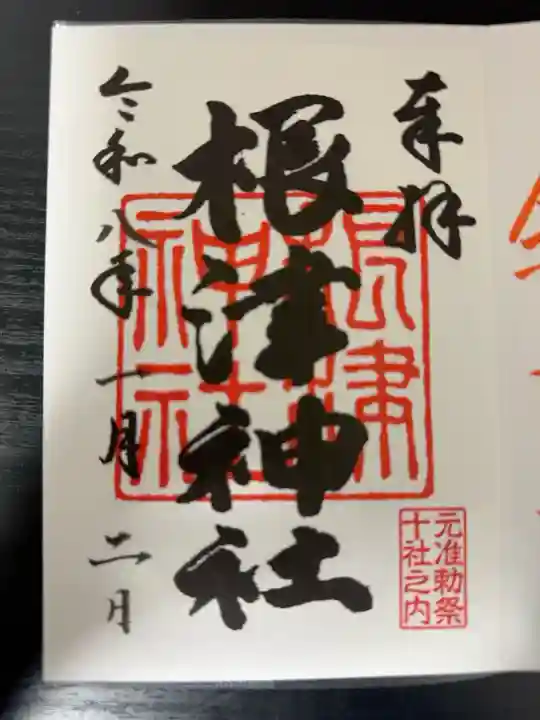 奉拝
根津神社
令和八年一月二日
根津
神社
元准勅祭
十社之内